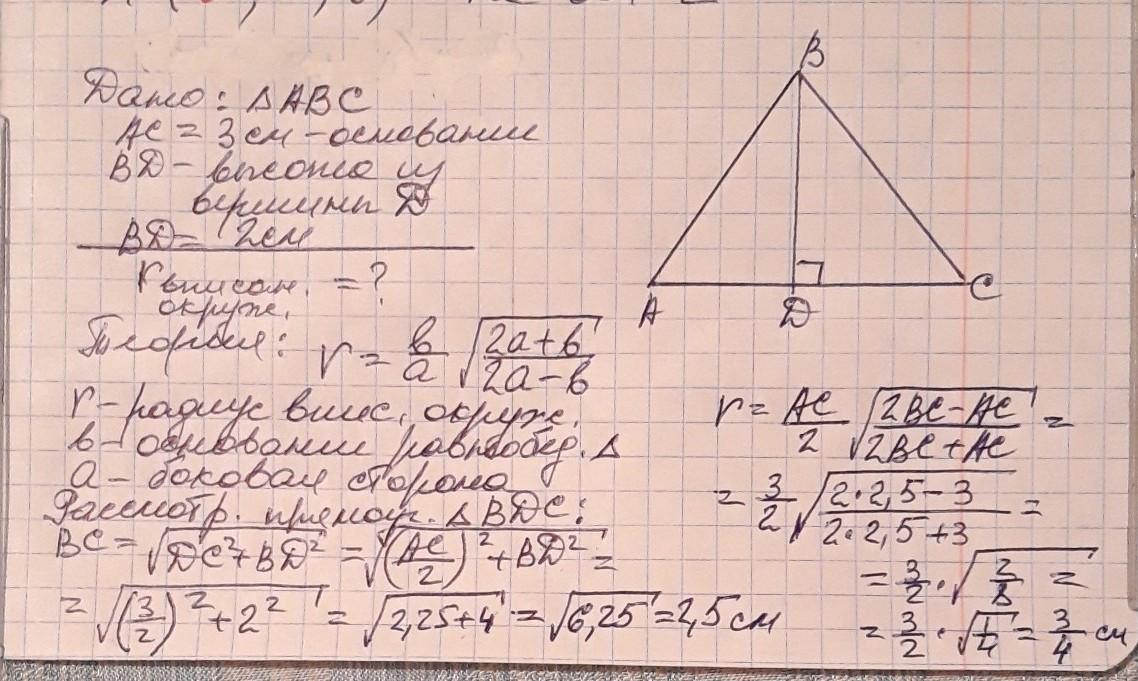 Дано: ΔABC
AC = 3 см - основание
BD - высота из
вершины D
BD = 2 см
r вписан. = ?
окруж.
B
A
D
C
Теория: r = в/a √((2a+в)/(2a-в))
r - радиус впис. окруж.
в - основание равнобед. Δ
a - боковая сторона
Рассмотр. прямоуг. Δ BDC:
BC = √(DC²+BD²) = √((AC/2)²+BD²) =
= √((3/2)²+2²) = √(2,25+4) = √6,25 = 2,5 см
r = AC/2 √((2BC-AC)/(2BC+AC)) =
= 3/2 √((2·2,5-3)/(2·2,5+3)) =
= 3/2 · √(2/8) =
= 3/2 · √(1/4) = 3/4 см